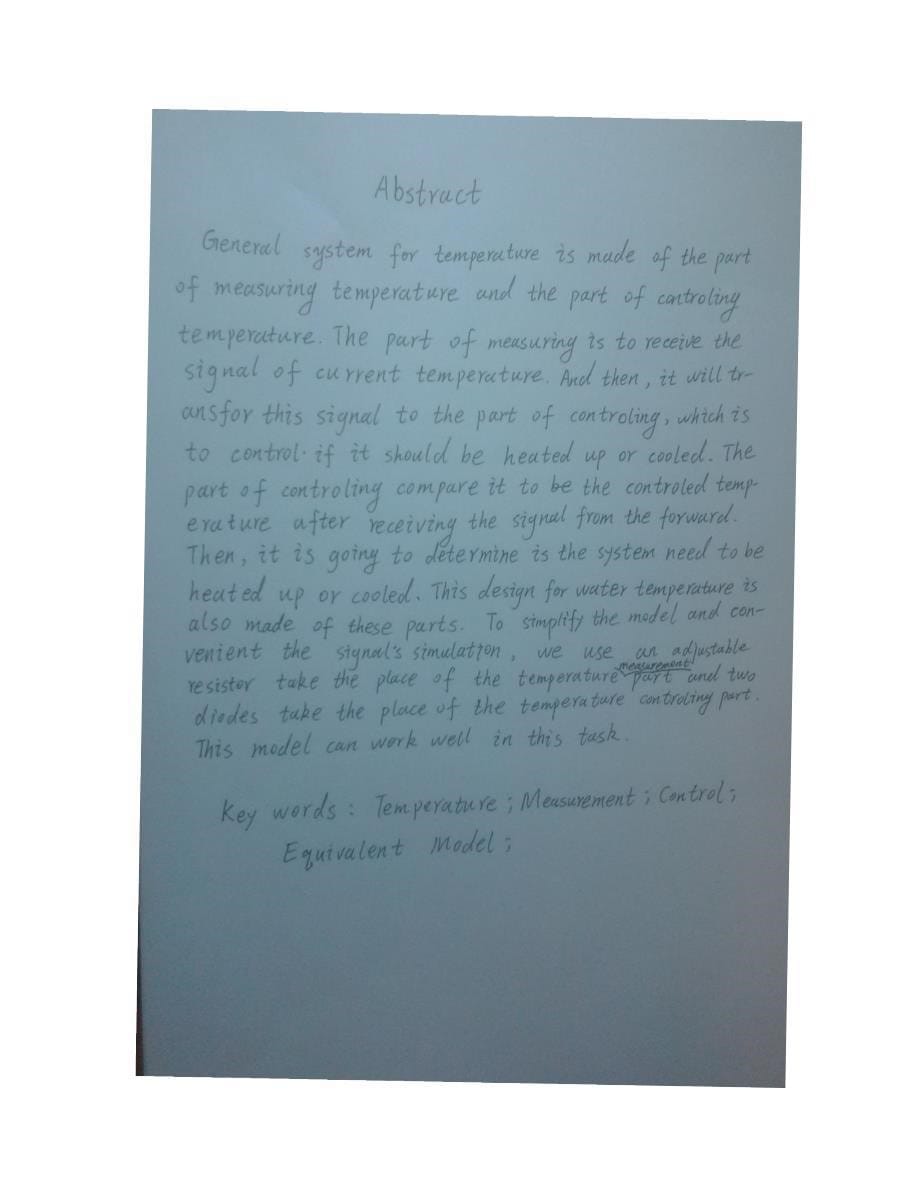 Abstract
General system for temperature is made of the part
of measuring temperature and the part of controling
temperature. The part of measuring is to receive the
signal of current temperature. And then, it will tr-
ansfor this signal to the part of controling, which is
to control if it should be heated up or cooled. The
part of controling compare it to be the controled temp-
erature after receiving the signal from the forward.
Then, it is going to determine is the system need to be
heated up or cooled. This design for water temperature is
also made of these parts. To simplify the model and con-
venient the signal's simulation, we use an adjustable
resistor take the place of the temperature measurement part and two
diodes take the place of the temperature controling part.
This model can work well in this task.
Key words: Temperature; Measurement; Control;
Equivalent Model;